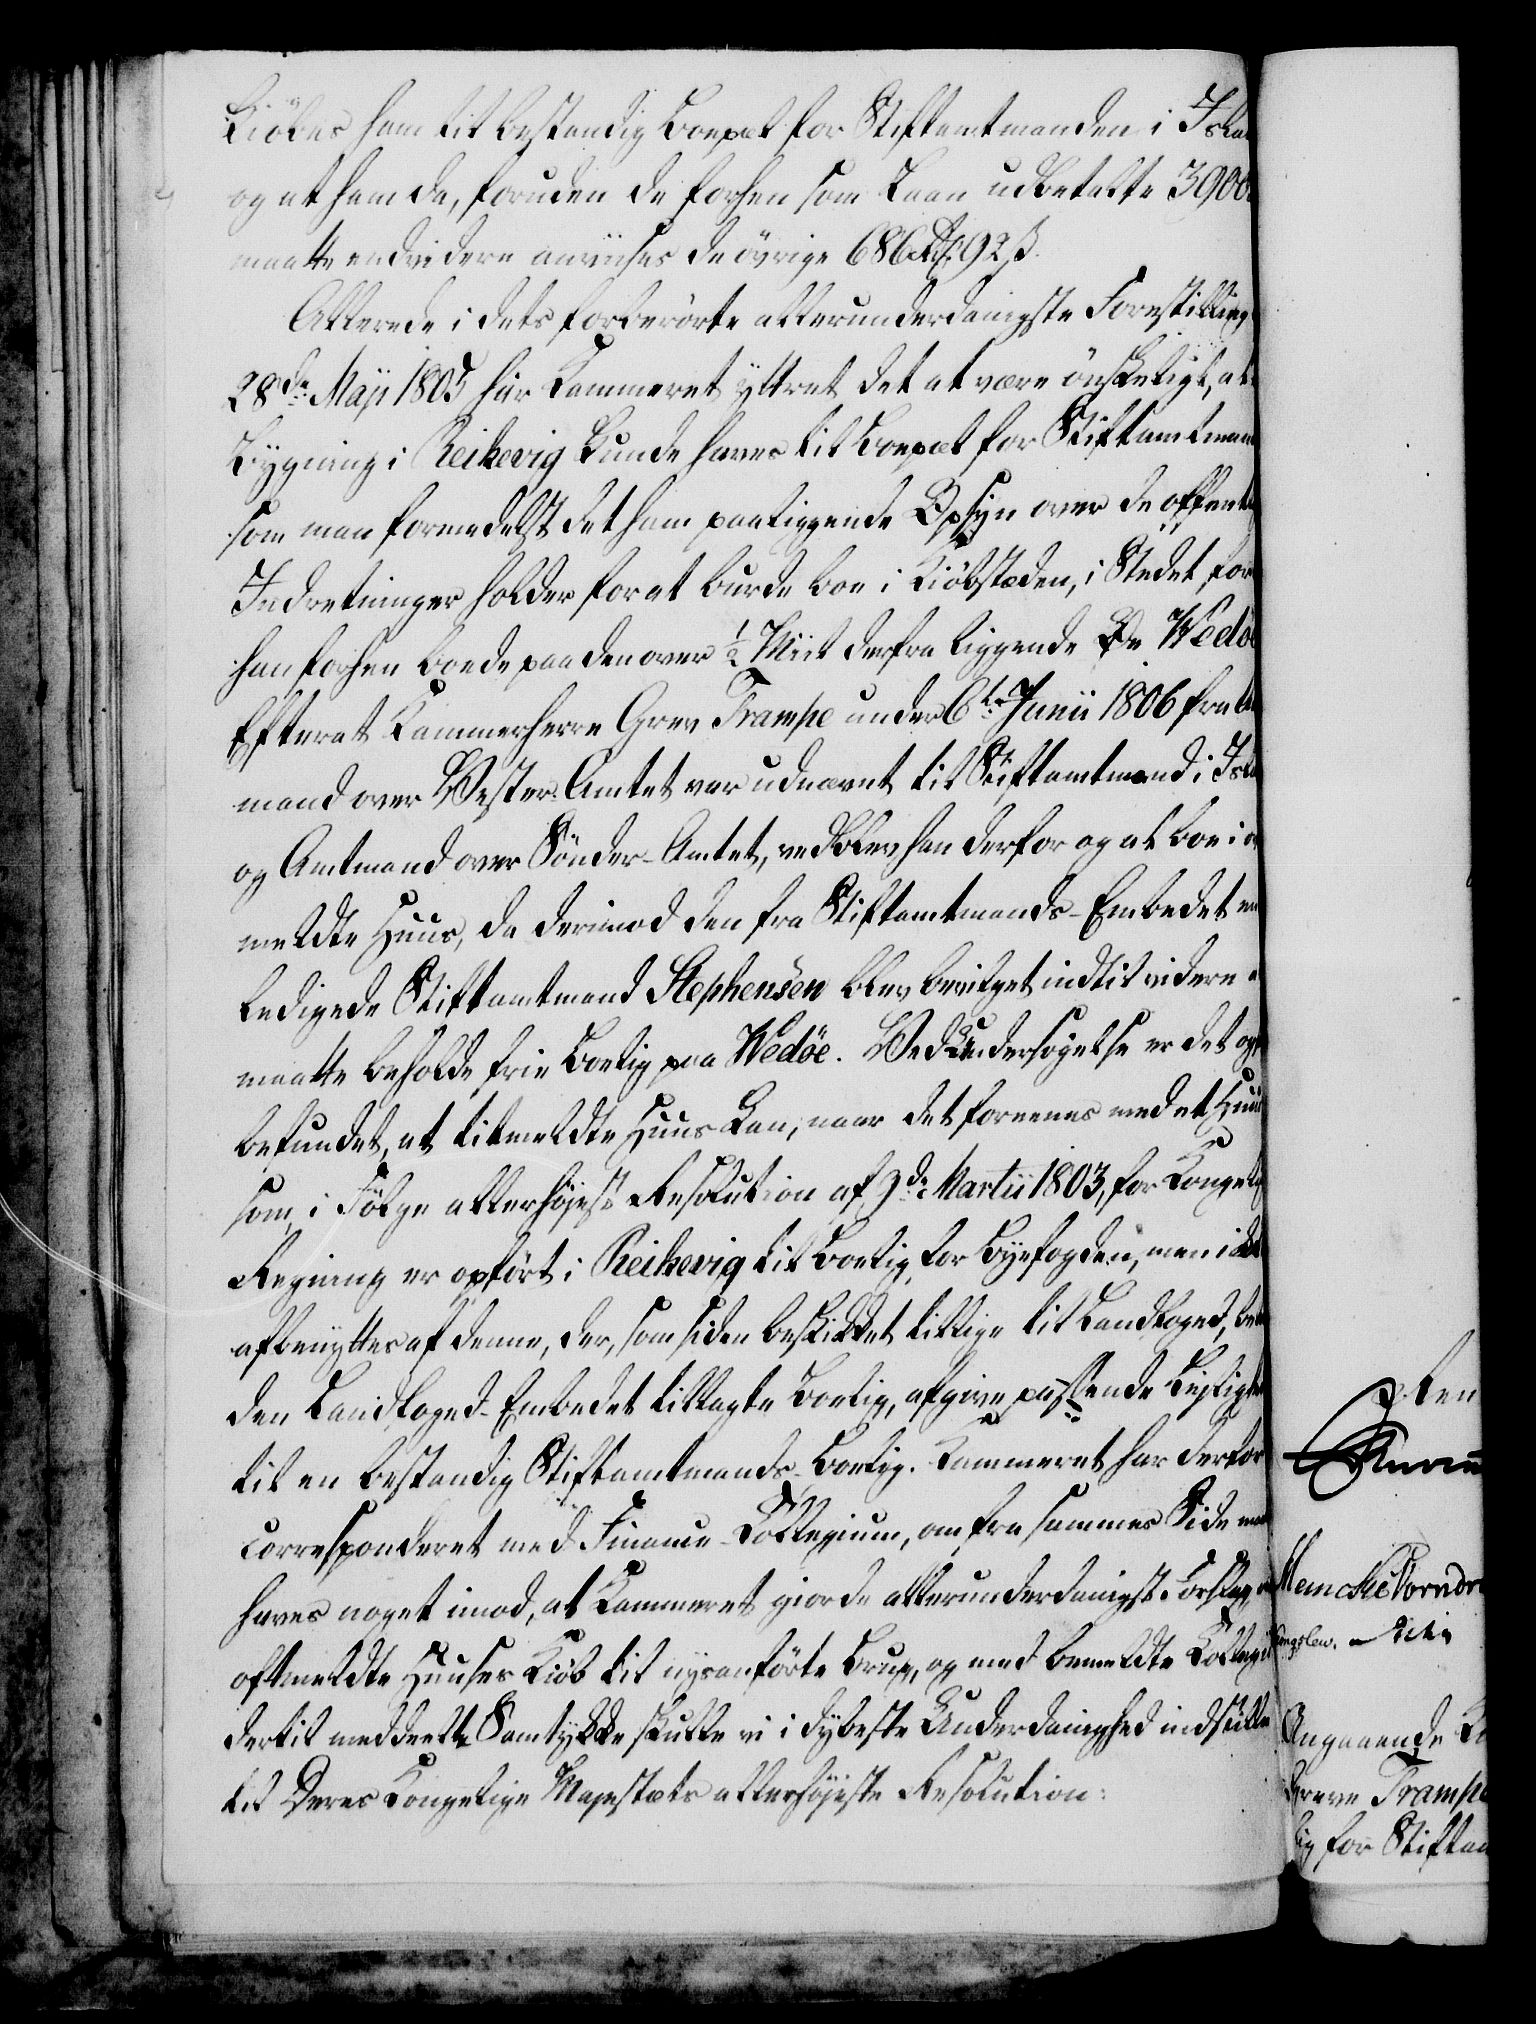 Kiöbes ham til bestandig Boepæl for Stiftamtmanden i Isla
og at ham da, foruden de forhen som Laan udbetalte 3900
maatte endvidere anviises de övrige 686 Rd. 92 s.
Allerede i dets forberörte allerunderdanigste Forestilling
28de Maji 1805 har Kammeret yttret det at være önskeligt, at
Bygning i Reikevig kunde haves til Boepæl for Stiftamtman
som man formedelst det ham paaliggende Opsyn over de offent
Indretninger holder for at burde boe i Kiöbstæden, i Stedet for
han forhen boede paa den over ½ Miil derfra liggende Öe Wedö
Efterat Kammerherre Grev Trampe under 6te Junii 1806 fra A
mand over Vester-Amtet var udnævnt til Stiftamtmand i Isla
og Amtmand over Sönder-Amtet, vedblev han derfor og at boe i
meldte Huus, da derimod den fra Stiftamtmands-Embedet en
ledigede Stiftamtmand Stephensen blev bevilget indtil videre
maatte beholde frie Boelig paa Wedöe. Ved Undersögelse er det og
befundet, at titmeldte Huus kan, naar det forenes med et Huu
som, i Fölge allerhöjeste Resolution af 9de Martii 1803, for Kongelig
Regning er opfört i Reikevig til Boelig for Byefogden, men ikke
afbenyttes af denne, der, som siden beskikket tillige til Landfoged, be
den Landfoged-Embedet tillagte Boelig, afgive passende Leilighe
til en bestandig Stiftamtmands-Boelig. Kammeret har derfor
correspondert med Finance-Collegium, om fra sammes Side
haves noget imod, at Kammeret giorde allerunderdanigst Forslag
oftmeldte Huuses Kiöb til nysanförte Brug, og med bemeldte Collegii
dertil meddeelte Samtykke skulle vi i dybeste Underdanighed indstille
til Deres Kongelige Majestæts allerhöjeste Resolution:
Angaaende K
Greve Trampe
lig for Stiftam